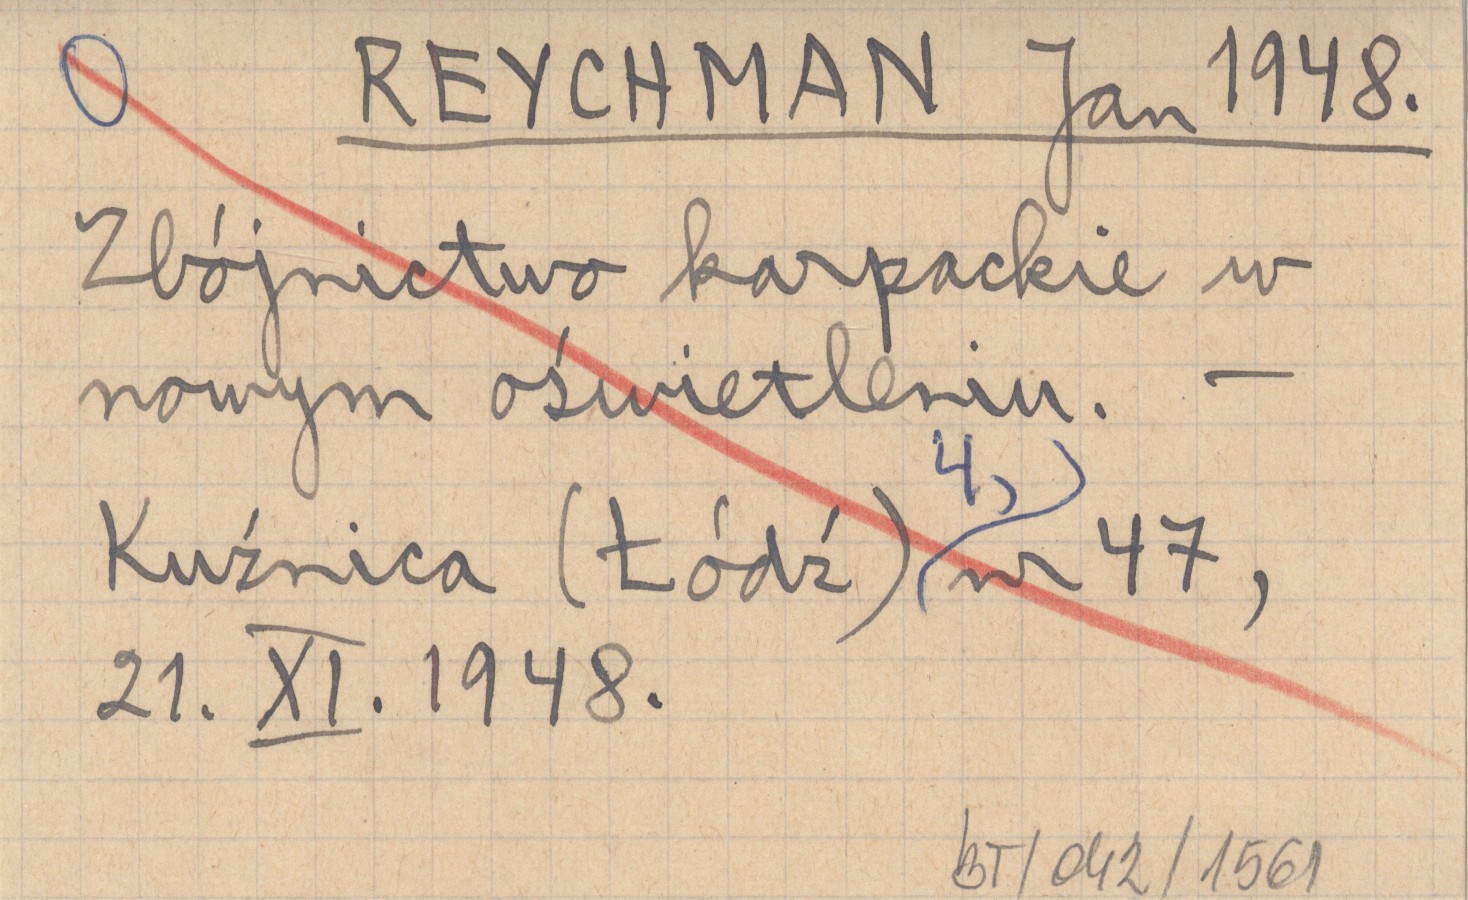 REYCHMAN Jan 1948.
Zbójnictwo karpackie w
nowym oświetleniu. —
4,
Kuźnica (Łódź) nr 47,
21. XI. 1948.
BT/042/1561